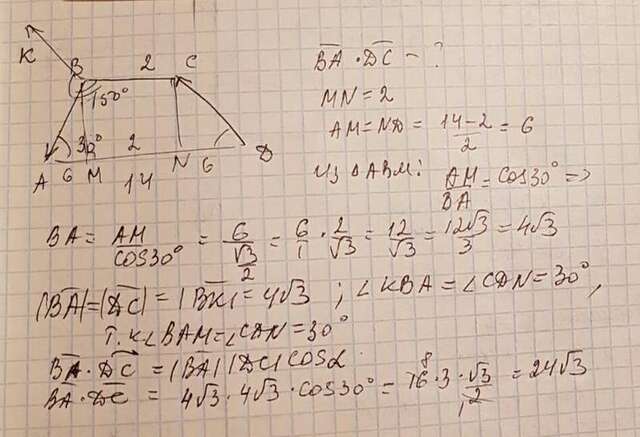 K
B 2 C
150°
30° 2
A 6 M 14 N 6 D
BA · DC - ?
MN = 2
AM = ND = 14-2/2 = 6
Из △ABM: AM/BA = cos30° =>
BA = AM/cos30° = 6/(√3/2) = 6/1 · 2/√3 = 12/√3 = 12√3/3 = 4√3
|BA| = |DC| = |BK| = 4√3 ; ∠KBA = ∠CDN = 30°,
т.к ∠BAM = ∠CDN = 30°
BA · DC = |BA| |DC| cosα
BA · DC = 4√3 · 4√3 · cos30° = 16 8 · 3 · √3/2 1 = 24√3